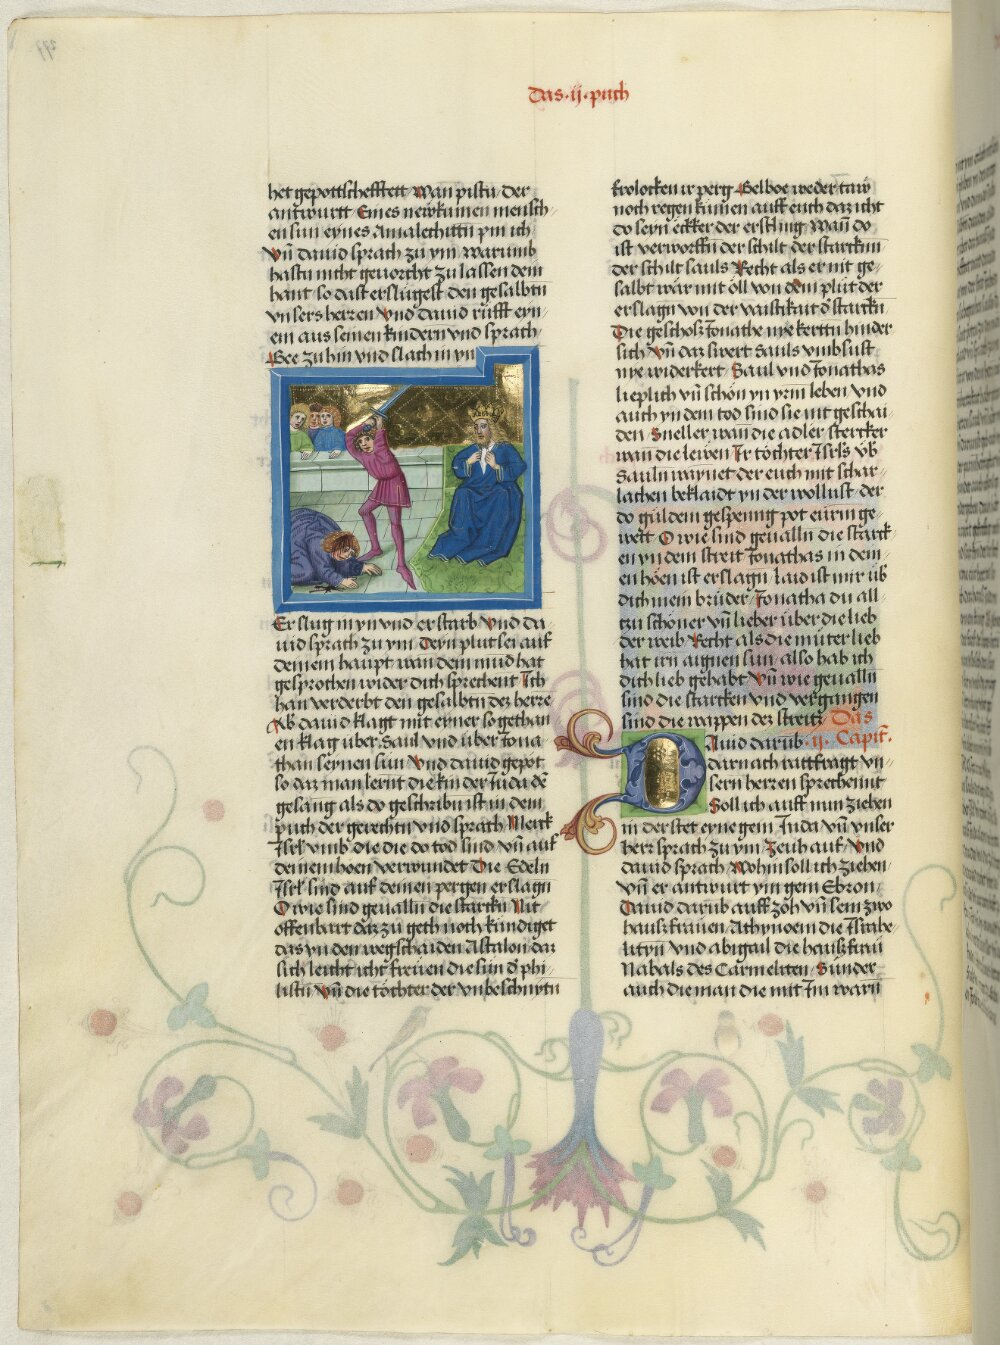 Das·ij·puch
het gepottschefftett Wan pistu der
antwurtt Eines newkumen mensch
en sun eynes Amalechittñ pin ich
Vñ dauid sprach zu ym warumb
hastu nicht geuorcht zu lassen dein
hant so dast erslugest den gesalbtñ
vnsers herren Vnd dauid rüfft eyn
ein aus seinen kindern vnd sprach
Gee zu hin vnd slach in yn
Er slug in yn vnd er starb Vnd da
uid sprach zu ym Deyn plut sei auf
deinem haupt wan dein mud hat
gesprochen wider dich sprechent Ich
han verderbt den gesalbtñ dez herrē
Ab dauid klagt mit eyner sogethan
en klag über Saul vnd über Jona
than seynen sun Vnd dauid gepot
so daz man lernt die kinder Juda dē
gesang als do geschribñ ist in dem
puch der gerechtñ vnd sprach Merck
Isrl vmb die die do tod sind vñ auf
deinem hoen verwundet Die Edeln
Isrl sind auf deinen pergen erslagñ
O wie sind geualln die starckñ Nit
offenbart daz zu geth noch kundiget
das yn den wegschaiden Astalon daz
sich leicht icht frewen die sün d phi
listñ Vñ die töchter der vnbeschnytñ
frolocken ir perg Gelboe weder taw
noch regen kumen auff euch daz icht
do seyn ecker der erstling Wañ do
ist verworffñ der schilt der starckñ
der schilt sauls Recht als er nit ge
salbt wär mit öll von dem plüt der
erslagñ von der waistikait d starckñ
Die geschosz Jonathe nye kerttñ hinder
sich Vñ daz swert Sauls vmbsust
nye widerkert Saul vnd Jonathas
lieplich vñ schön yn yrm leben vnd
auch yn dem tod sind sie nit geschai
den Sneller wan die adler stercker
wan die lewen Ir töchter Isrls üb
Sauln waynet der euch mit schar
lachen beklaidt yn der wollust der
do guldein gespenng pot eürm ge
wett O wie sind geualln die starck
en yn dem streit Jonathas in dein
en höen ist erslagñ Laid ist mir üb
dich mein brüder Jonatha du all
tzu schöner vñ lieber über die lieb
der weib Recht als die müter lieb
hat irn aignen sun also hab ich
dich lieb gehabt Vñ wie geualln
sind die starcken vnd vergangen
sind die wappen dez streitz Das
Auid darüb ·ij· Capit̃·
darnach rattfragt vn
sern herren sprechennt
Soll ich auff nun ziehen
in der stet eyne gein Juda vñ vnser
herr sprach zu ym Zeüb auf Vnd
dauid sprach Wohin soll ich ziehen
Vñ er antwurt ym gein Ebron
Dauid darüb auff zöh vñ sein zwo
hauszfrauen Athynoem die Israhe
litiñ vnd abigail die hauszfraw
Nabals des Carmeliten Sunder
auch die man die mit Im warñ